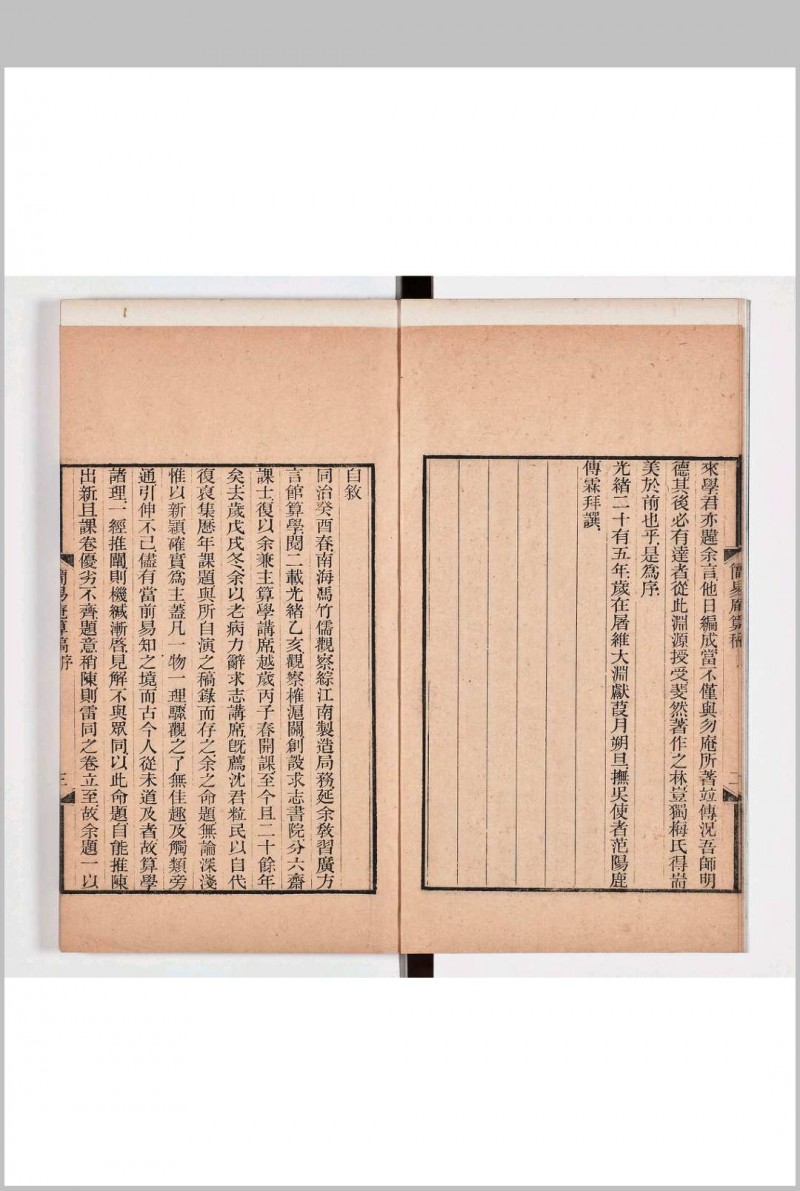 來學君亦韙余言他日編成當不僅與勿庵所著竝傳況吾師明
德其後必有達者從此淵源授受斐然著作之林豈獨梅氏得耑
美於前也乎是爲序
光緒二十有五年歲在屠維大淵獻葭月朔旦撫吳使者范陽鹿
傳霖拜譔
簡易庵算稿
二
自敘
同治癸酉春南海馮竹儒觀察綜江南製造局務延余敎習廣方
言館算學閱二載光緒乙亥觀察榷滬關創設求志書院分六齋
課士復以余兼主算學講席越歲丙子春開課至今且二十餘年
矣去歲戊戌冬余以老病力辭求志講席旣薦沈君粒民以自代
復裒集歷年課題與所自演之稿錄而存之余之命題無論深淺
惟以新穎確實爲主蓋凡一物一理驟觀之了無佳趣及觸類旁
通引伸不已儘有當前易知之境而古今人從未道及者故算學
諸理一經推闡則機緘漸啓見解不與眾同以此命題自能推陳
出新且課卷優劣不齊題意稍陳則雷同之卷立至故余題一以
簡易庵算稿 序
三